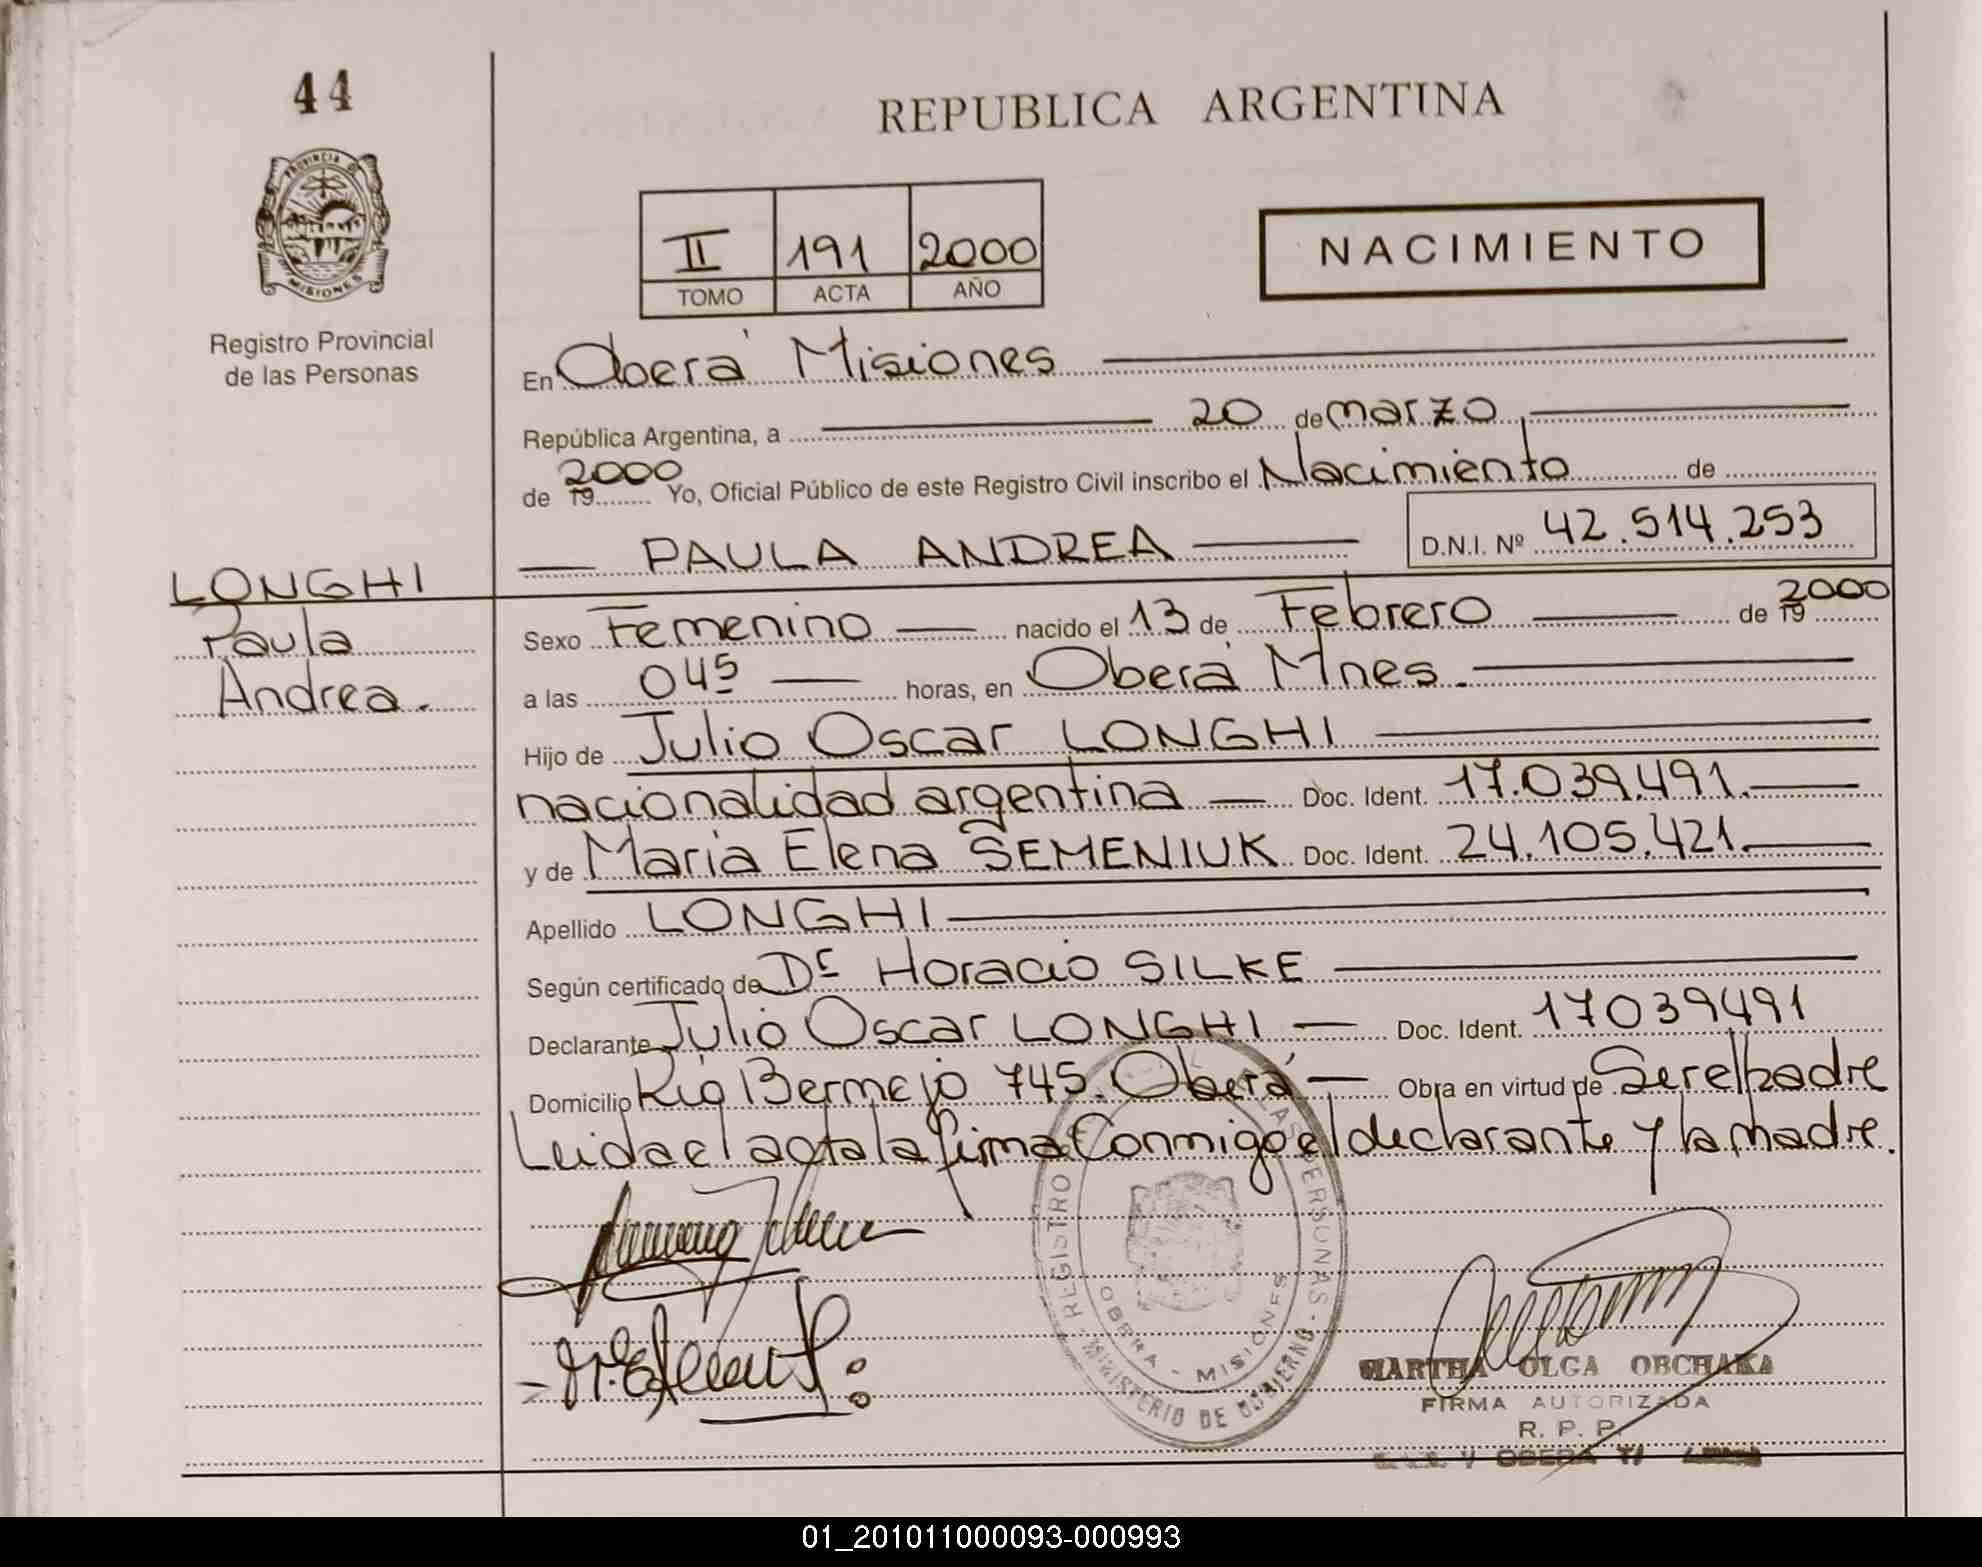 44
REPUBLICA ARGENTINA
PROVINCIA DE
MISIONES
Registro Provincial
de las Personas
II 191 2000
TOMO ACTA AÑO
NACIMIENTO
En Oberá Misiones
República Argentina, a 20 de marzo
de 19 2000 Yo, Oficial Público de este Registro Civil inscribo el Nacimiento de
PAULA ANDREA D.N.I. Nº 42.514.253
LONGHI
Paula
Andrea.
Sexo Femenino nacido el 13 de Febrero de 19 2000
a las 04⁵ horas, en Oberá Mnes.
Hijo de Julio Oscar LONGHI
nacionalidad argentina Doc. Ident. 17.039.491.
y de Maria Elena SEMENIUK Doc. Ident. 24.105.421.
Apellido LONGHI
Según certificado de Dr Horacio SILKE
Declarante Julio Oscar LONGHI Doc. Ident. 17039491
Domicilio Rio Bermejo 745. Oberá Obra en virtud de Ser el padre
Leida el acta la firma Conmigo el declarante y la madre.
REGISTRO LAS PERSONAS
OBERA - MISIONES
MINISTERIO DE GOBIERNO
MARTHA OLGA OBCHAKA
FIRMA AUTORIZADA
R. P. P.
OBERA
01_201011000093-000993